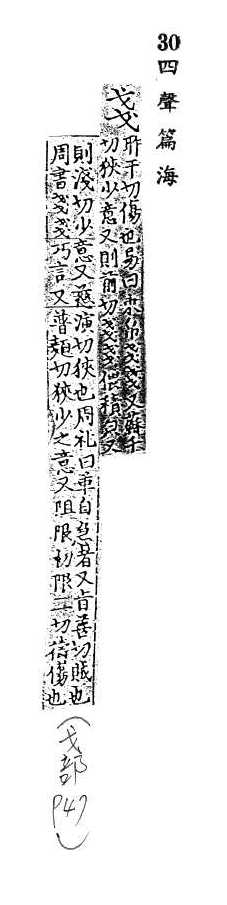 30四聲篇海
戔 昨千切傷也易曰束帛戔戔又蘇千
切狹少意又則前切戔戔積皃又
則淺切少意又演切狹也周礼曰帛自急者又音善切賊也
周書戔戔巧言又普麵切狹少之意又阻限初限二切傷也
(戈部
P47)